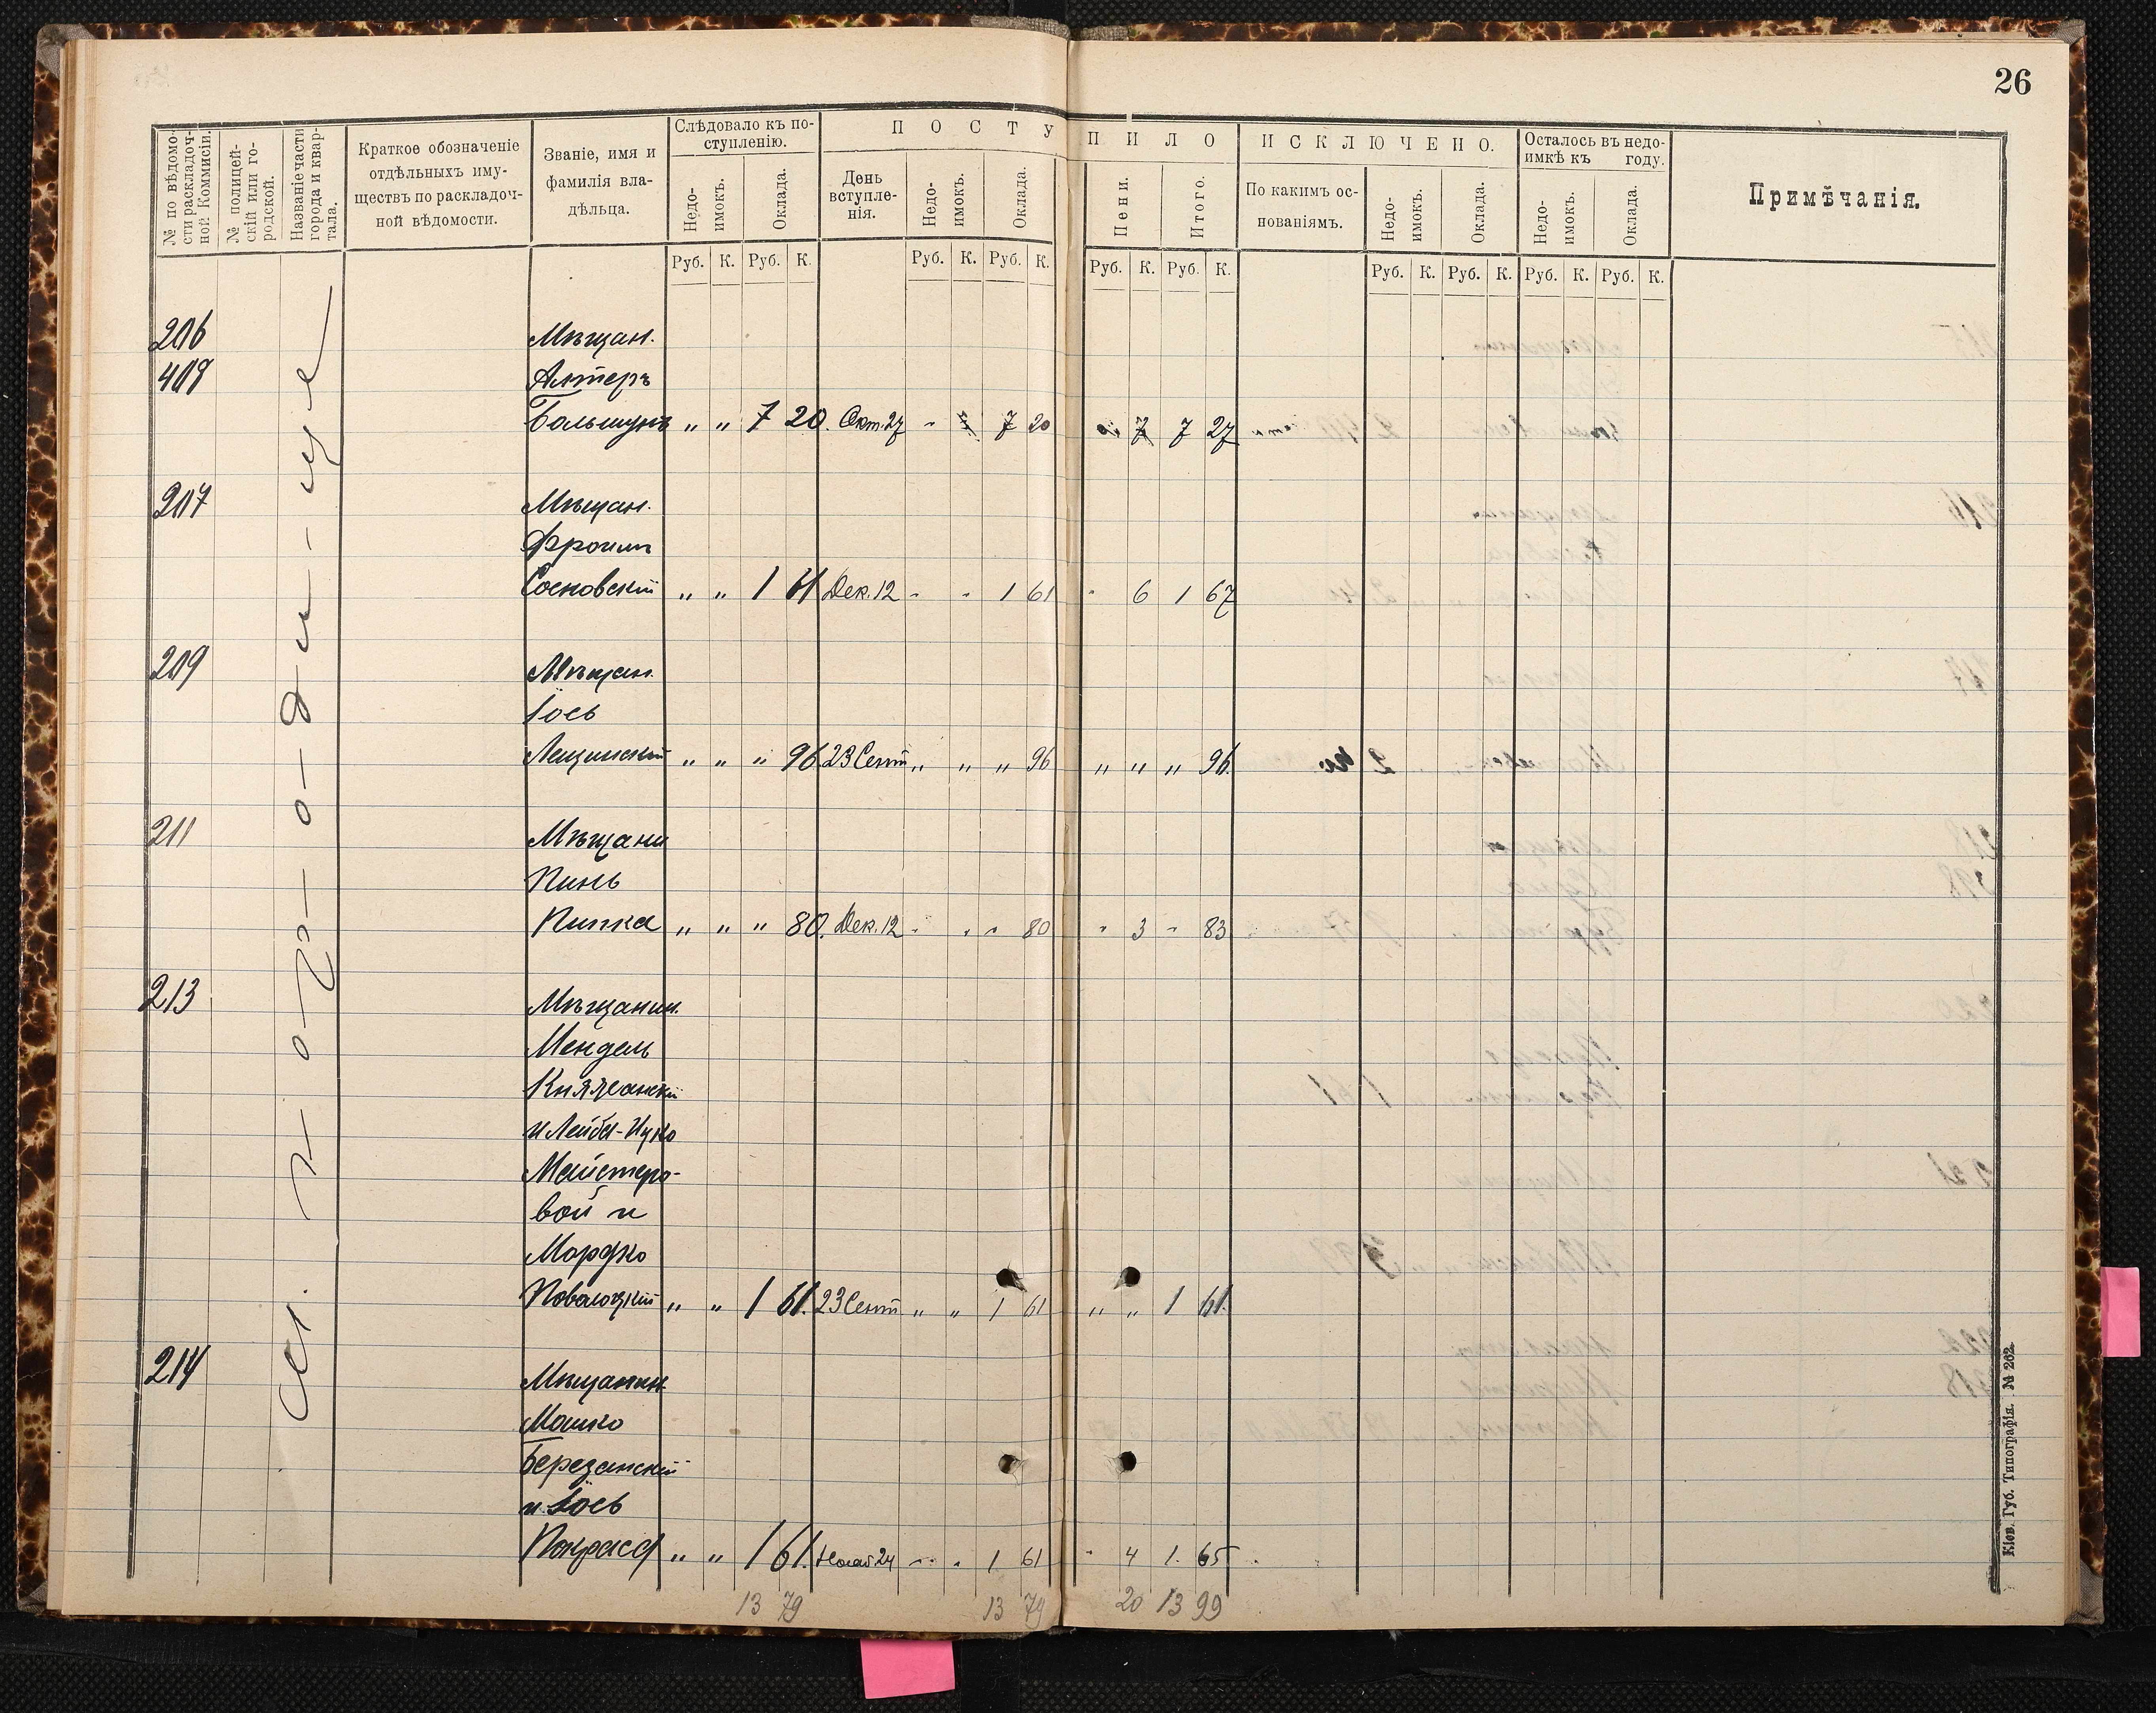 26
№ по вѣдомо-
сти раскладоч-
ной Коммисіи.
№ полицей-
скій или го-
родской.
Названіе части
города и квар-
тала.
Краткое обозначеніе
отдѣльныхъ иму-
ществъ по раскладоч-
ной вѣдомости.
Званіе, имя и
фамилія вла-
дѣльца.
Слѣдовало къ по-
ступленію.
Недо-
имокъ.
Оклада.
ПОСТУПИЛО
День
вступле-
нія.
Недо-
имокъ.
Оклада.
Пени.
Итого.
ИСКЛЮЧЕНО.
По какимъ ос-
нованіямъ.
Недо-
имокъ.
Оклада.
Осталось въ недо-
имкѣ къ году.
Недо-
имокъ.
Оклада.
Примѣчанія.
Руб. К. Руб. К. Руб. К. Руб. К. Руб. К. Руб. К. Руб. К. Руб. К. Руб. К. Руб. К.
М. Городище
206 Мѣщан.
409 Алтеръ
Большунъ „ „ 7 20. Окт. 27 „ 7 20 „ 7 7 27
207 Мѣщан.
Фроимъ
Сосновскій „ „ 1 61 Дек. 12 „ „ 1 61 „ 6 1 67
209 Мѣщан.
Іось
Лещинскій „ „ „ 96. 23 Сент. „ „ „ 96 „ „ „ 96.
211 Мѣщани
Пинь
Пипка „ „ „ 80. Дек. 12 „ „ „ 80 „ 3 „ 83
213 Мѣщанин.
Мендель
Княжанскій
и Лейба-Ицко
Мейстеро-
вой и
Мордко
Поволоцкій „ „ 1 61. 23 Сент. „ „ 1 61 „ „ 1 61.
214 Мѣщанин
Мошко
Березанскій
и Іось
Покрасъ „ „ 1 61. 24 „ „ 1 61 „ 4 1. 65
13 79 13 79 20 13 99
Кіев. Губ. Типографія. № 262.